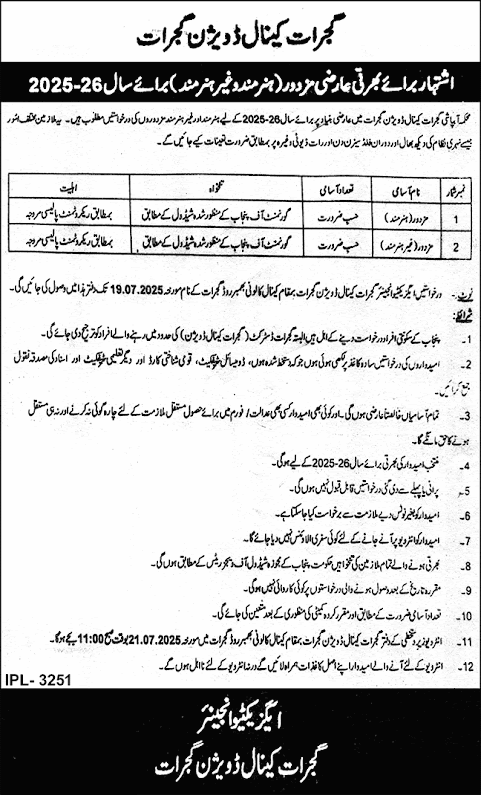 گجرات کینال ڈویژن گجرات
اشتہار برائے بھرتی عارضی مزدور (ہنر مند و غیر ہنر مند) برائے سال 26-2025
محکمہ آبپاشی گجرات کینال ڈویژن گجرات میں عارضی بنیاد پر برائے سال 26-2025 کے لیے ہنر مند اور غیر ہنر مند مزدوروں کی درخواستیں مطلوب ہیں۔ یہ ملازمین مختلف امور
جیسے نہری نظام کی دیکھ بھال اور دوران فلڈ سیزن دن اور رات ڈیوٹی وغیرہ پر بمطابق ضرورت تعینات کیے جائیں گے۔
نمبر شمار نام آسامی تعداد آسامی تنخواہ اہلیت
1 مزدور (ہنر مند) حسب ضرورت گورنمنٹ آف پنجاب کے منظور شدہ شیڈول کے مطابق بمطابق ریکروٹمنٹ پالیسی مروجہ
2 مزدور (غیر ہنر مند) حسب ضرورت گورنمنٹ آف پنجاب کے منظور شدہ شیڈول کے مطابق بمطابق ریکروٹمنٹ پالیسی مروجہ
نوٹ:۔ درخواستیں ایگزیکٹو انجینئر گجرات کینال ڈویژن گجرات بمقام کینال کالونی بھمبر روڈ گجرات کے نام مورخہ 19.07.2025 تک دفتر ہذا میں وصول کی جائیں گی۔
شرائط:
1۔ پنجاب کے سکونتی افراد درخواست دینے کے اہل ہیں البتہ گجرات ڈسٹرکٹ (گجرات کینال ڈویژن) کی حدود میں رہنے والے افراد کو ترجیح دی جائے گی۔
2۔ امیدواروں کی درخواستیں سادہ کاغذ پر لکھی ہوئی ہوں جو کہ دستخط شدہ ہوں، ڈومیسائل سرٹیفکیٹ، قومی شناختی کارڈ اور دیگر تعلیمی سرٹیفکیٹ اور اسناد کی مصدقہ نقول
جمع کرائیں۔
3۔ تمام آسامیاں خالصتاً عارضی ہوں گی۔ اور کوئی بھی امیدوار کسی بھی عدالت / فورم میں برائے حصول مستقل ملازمت کے لئے چارہ گوئی نہ کرے گا اور نہ ہی مستقل
ہونے کا حق مانگے گا۔
4۔ منتخب امیدوار کی بھرتی برائے سال 26-2025 کے لیے ہو گی۔
5۔ پرانی یا پہلے سے دی گئی درخواستیں قابل قبول نہیں ہوں گی۔
6۔ امیدوار کو بغیر نوٹس دیے ملازمت سے برخواست کیا جا سکتا ہے۔
7۔ امیدوار کو انٹرویو پر آنے جانے کے لئے کوئی سفری الاؤنس نہیں دیا جائے گا۔
8۔ بھرتی ہونے والے تمام ملازمین کی تنخواہیں حکومت پنجاب کے مجوزہ شیڈول آف ویجز ریٹس کے مطابق ہوں گی۔
9۔ مقررہ تاریخ کے بعد وصول ہونے والی درخواستوں پر کوئی کاروائی نہیں ہو گی۔
10۔ تعداد آسامی ضرورت کے مطابق اور مقرر کردہ کمیٹی کی منظوری کے بعد متعین کی جائے گی۔
11۔ انٹرویو زیر دستخطی کے دفتر گجرات کینال ڈویژن گجرات بمقام کینال کالونی بھمبر روڈ گجرات میں مورخہ 21.07.2025 بوقت صبح 11:00 بجے ہو گا۔
12۔ انٹرویو کے لئے آنے والے امیدوار اپنے اصل کاغذات ہمراہ لائیں گے ورنہ انٹرویو کے لئے نا اہل ہوں گے۔
IPL- 3251
ایگزیکٹو انجینئر
گجرات کینال ڈویژن گجرات